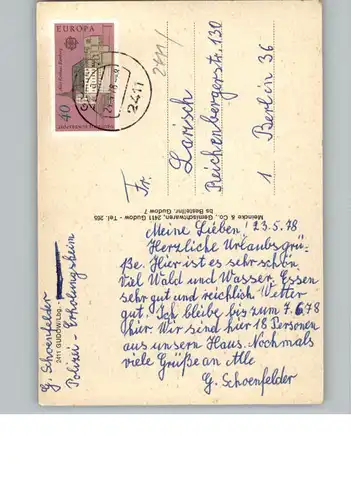 EUROPA
40
2411
2411
Fr.
Larisch
Reichenbergerstr. 130
1 Berlin 36
Meincke & Co., Gemischtwaren, 2411 Gudow - Tel. 265
bs Bestellnr. Gudow 7
Meine Lieben! 23.5.78
Herzliche Urlaubsgrü-
ße. Hier ist es sehr schön.
Viel Wald und Wasser. Essen
sehr gut und reichlich. Wetter
gut. Ich bleibe bis zum 7.6.78
hier. Wir sind hier 18 Personen
aus unserm Haus. Nochmals
viele Grüße an Alle
G. Schoenfelder
G. Schoenfelder
2411 GUDOW/Lbg.
Polizei-Erholungsheim